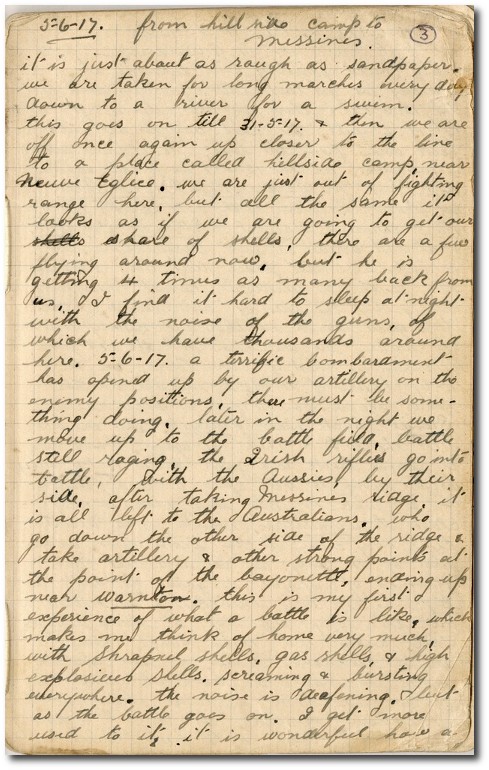 5-6-17. from hill side camp to
Messines.
3
it is just about as rough as sandpaper.
we are taken for long marches every day
down to a river for a swim.
this goes on till 31-5-17. & then we are
off once again up closer to the line
to a place called hillside camp, near
Neuve Eglice. we are just out of fighting
range here, but all the same it
looks as if we are going to get our
shells share of shells, there are a few
flying around now, but he is
getting 4 times as many back from
us, I find it hard to sleep at night
with the noise of the guns, of
which we have thousands around
here. 5-6-17. a terrific bombardment
has opened up by our artillery on the
enemy positions, there must be some-
thing doing. later in the night we
move up to the battle field, battle
still raging, the Irish rifles go into
battle, with the Aussies by their
side, after taking Messines ridge, it
is all left to the Australians, who
go down the other side of the ridge &
take artillery & other strong points at
the point of the bayonette, ending up
near warnton. this is my first
experience of what a battle is like, which
makes me think of home very much,
with shrapnel shells, gas shells, & high
explosives shells. screaming & bursting
everywhere. the noise is deafening. but
as the battle goes on. I get more
used to it, it is wonderful how a